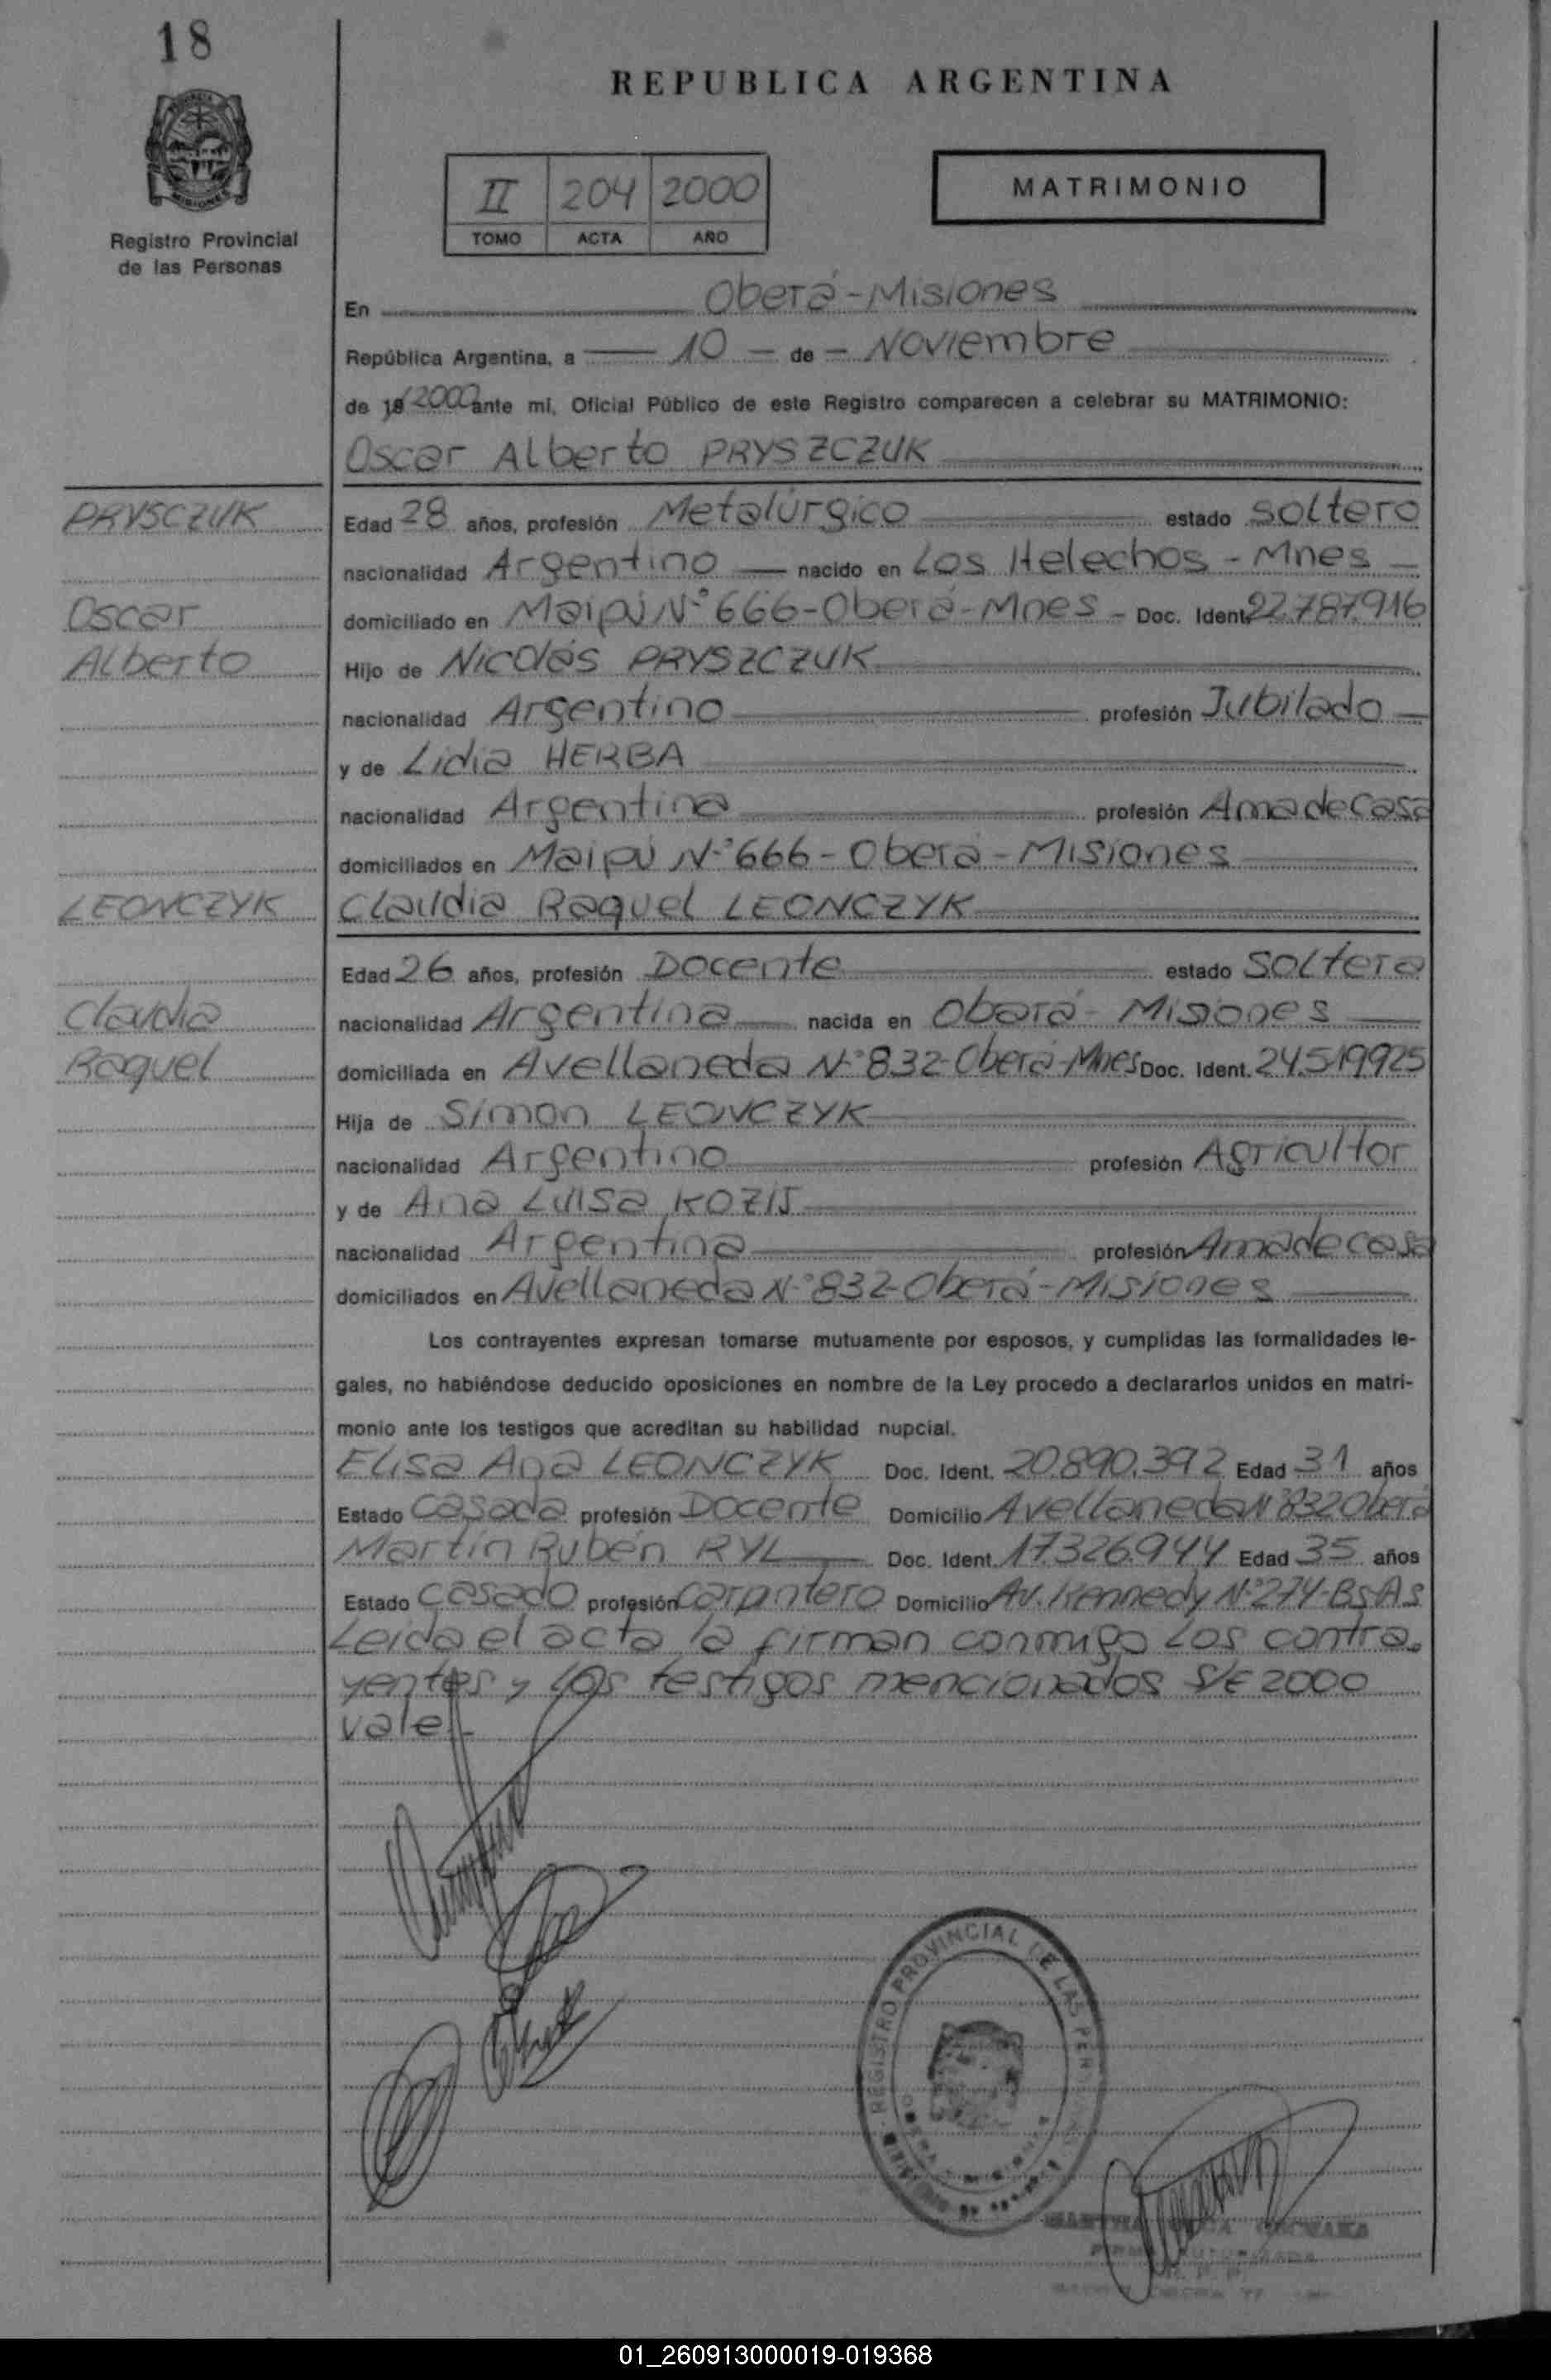 18
REPUBLICA ARGENTINA
II 204 2000
TOMO ACTA AÑO
MATRIMONIO
MISIONES
Registro Provincial
de las Personas
En Oberá-Misiones
República Argentina, a 10 - de - Noviembre
de 19 2000 ante mi, Oficial Público de este Registro comparecen a celebrar su MATRIMONIO:
Oscar Alberto PRYSZCZUK
PRYSCZUK
Edad 28 años, profesión Metalúrgico estado soltero
nacionalidad Argentino nacido en Los Helechos - Mnes
Oscar
domiciliado en Maipú N° 666-Oberá-Mnes - Doc. Ident. 22.787.916
Alberto
Hijo de Nicolás PRYSZCZUK
nacionalidad Argentino profesión Jubilado
y de Lidia HERBA
nacionalidad Argentina profesión Ama de casa
domiciliados en Maipú N° 666 - Oberá - Misiones
LEONCZYK
Claudia Raquel LEONCZYK
Edad 26 años, profesión Docente estado soltera
Claudia
nacionalidad Argentina nacida en Oberá - Misiones
Raquel
domiciliada en Avellaneda N° 832-Oberá-Mnes Doc. Ident. 24.519.925
Hija de Simon LEONCZYK
nacionalidad Argentino profesión Agricultor
y de Ana Luisa KOZIJ
nacionalidad Argentina profesión Ama de casa
domiciliados en Avellaneda N° 832-Oberá-Misiones
Los contrayentes expresan tomarse mutuamente por esposos, y cumplidas las formalidades le-
gales, no habiéndose deducido oposiciones en nombre de la Ley procedo a declararlos unidos en matri-
monio ante los testigos que acreditan su habilidad nupcial.
Elisa Ana LEONCZYK Doc. Ident. 20.890.392 Edad 31 años
Estado casada profesión Docente Domicilio Avellaneda N° 832 Oberá
Martín Rubén RYL Doc. Ident. 17.326.944 Edad 35 años
Estado casado profesión carpintero Domicilio Av. Kennedy N° 274-Bs As
Leida el acta la firman conmigo los contra-
yentes y los testigos mencionados S/E 2000
vale.-
REGISTRO PROVINCIAL DE LAS PER
01_260913000019-019368